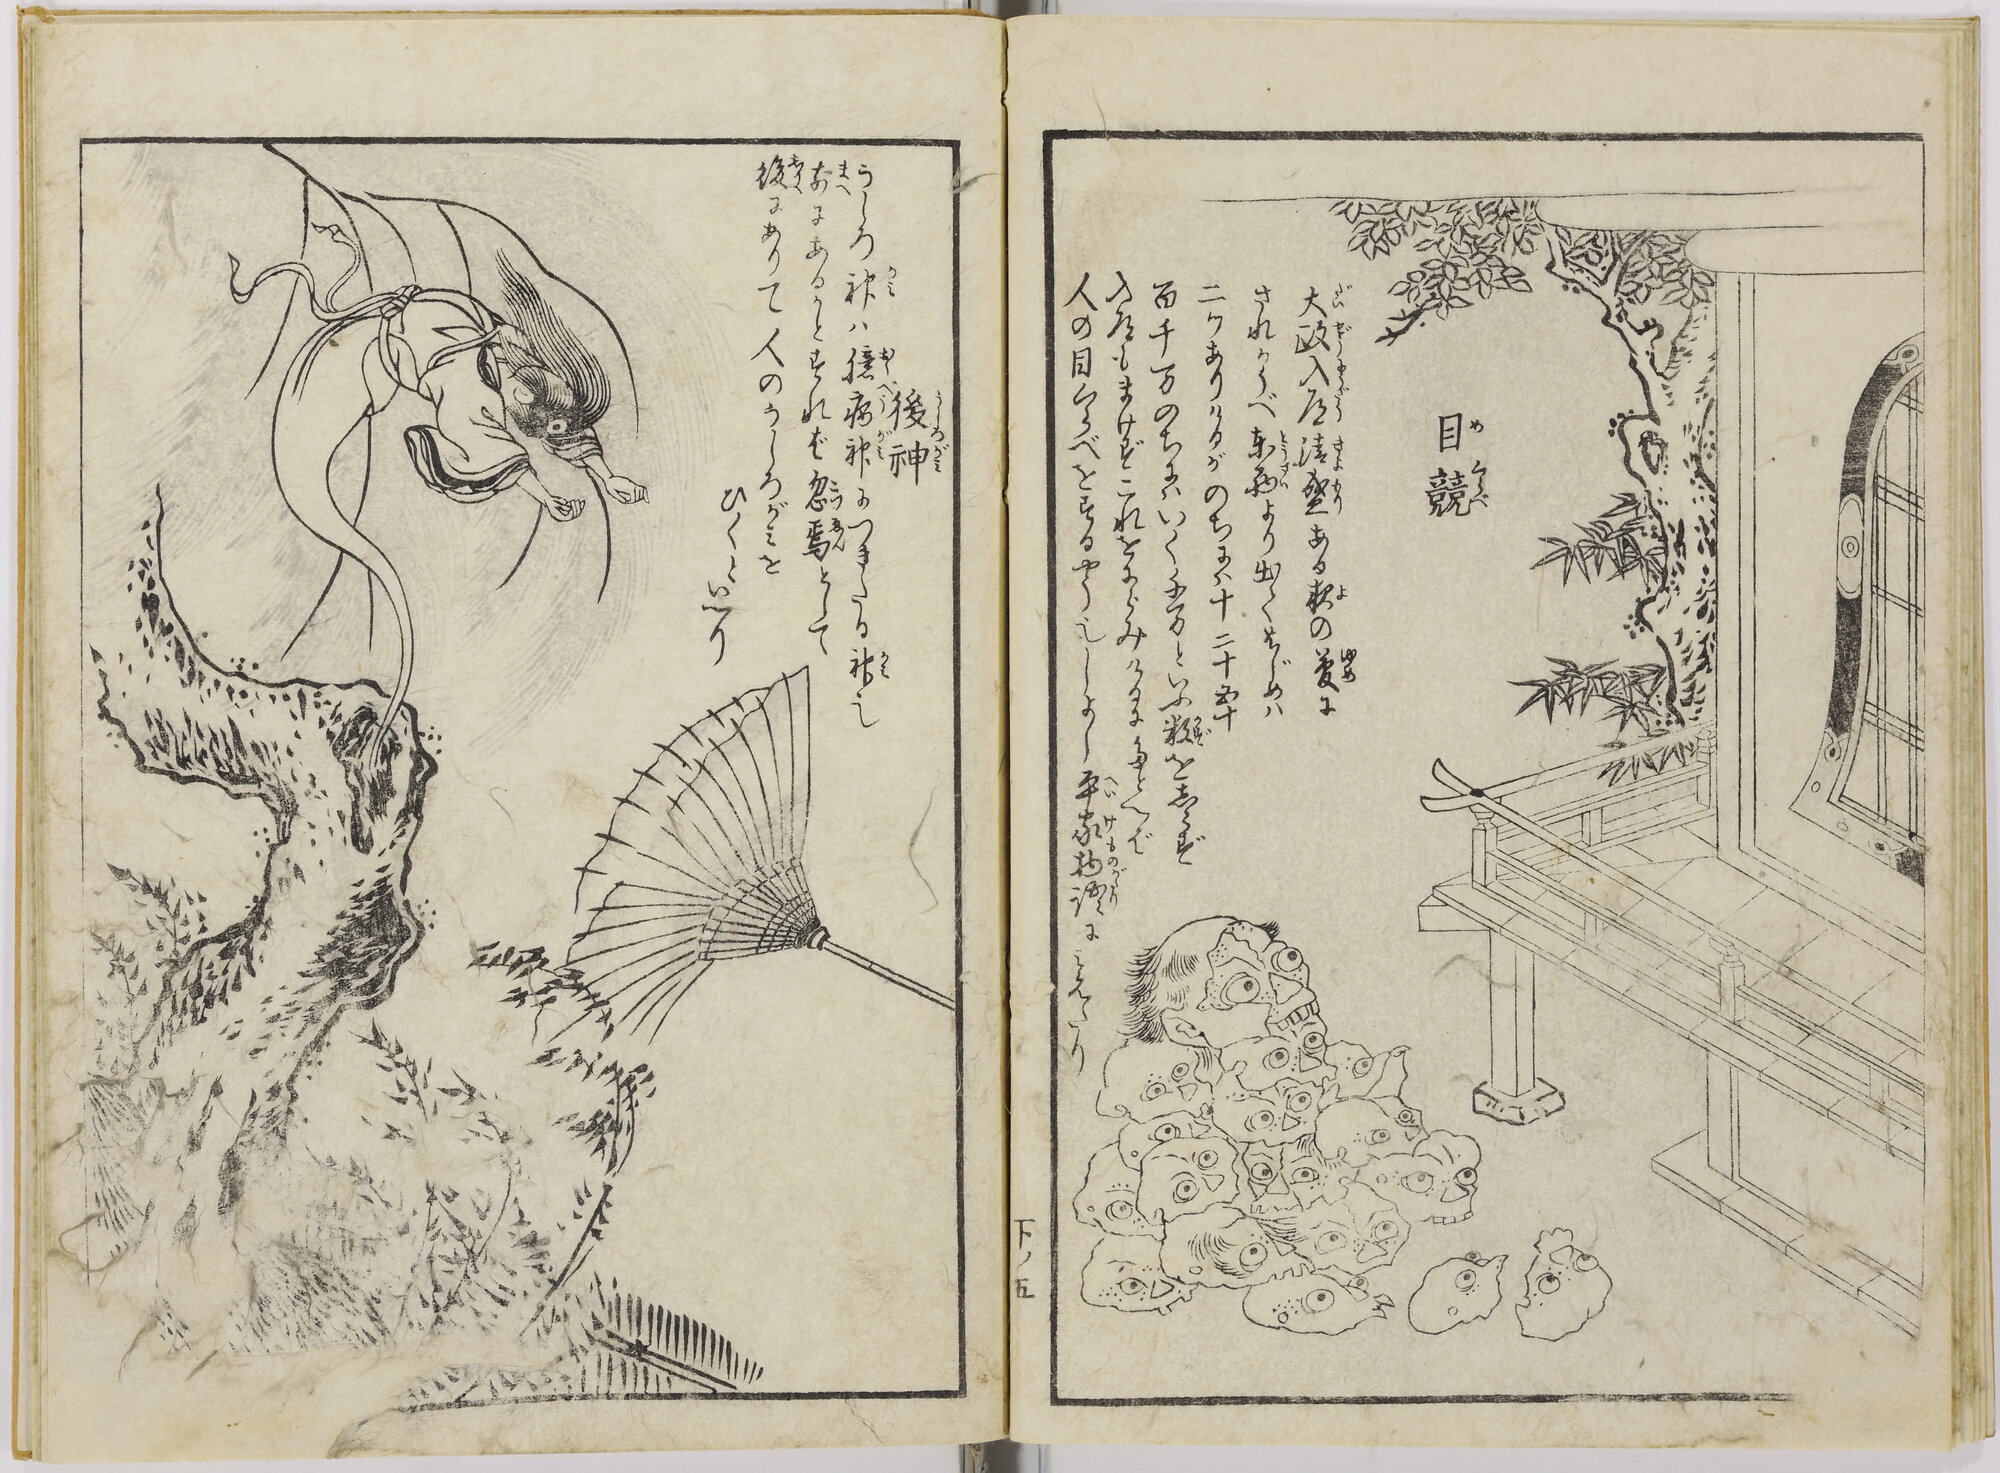 目競
大政入道清盛ある夜の夢に
されかうべ東西より出てはじめは
二つありけるがのちには十二十五十
百千万のちにはいく千万といふ数をしらず
入道もまけずこれをにらみけるにたとへば
人の目くらべをするやう也しよし平家物語にみえたり
下ノ五
後神
うしろ神は臆病神につきたる神也
前にあるかとすれば忽焉として
後にありて人のうしろがみを
ひくといへり